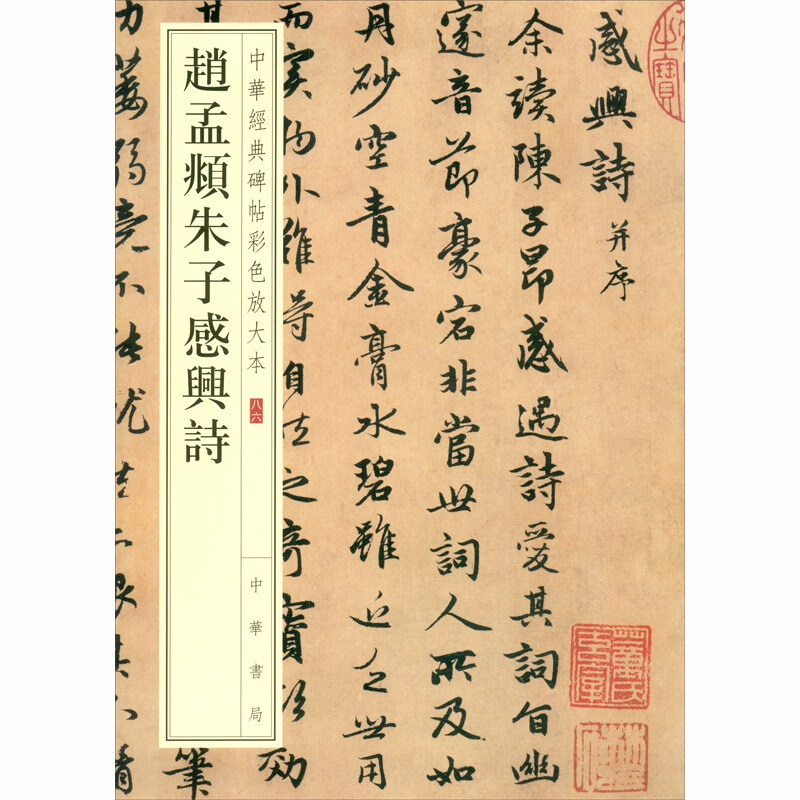 感興詩并序
余讀陳子昂感遇詩愛其詞旨幽
邃音節豪宕非當世詞人所及如
丹砂空青金膏水碧雖近乏世用
而實物外難得自然之奇寶欲効
筆
力萎弱竟不能就
中華經典碑帖彩色放大本
八六
中華書局
趙孟頫朱子感興詩